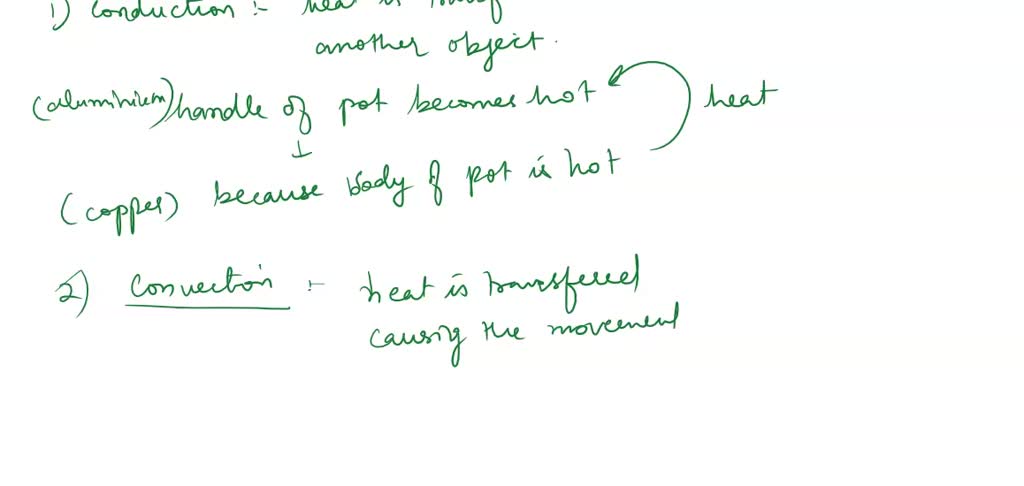 1) Conduction :- heat is
another object.
(aluminium) handle of pot becomes hot heat
(copper) because body of pot is hot
2) Convection :- heat is transferred
causing the movement